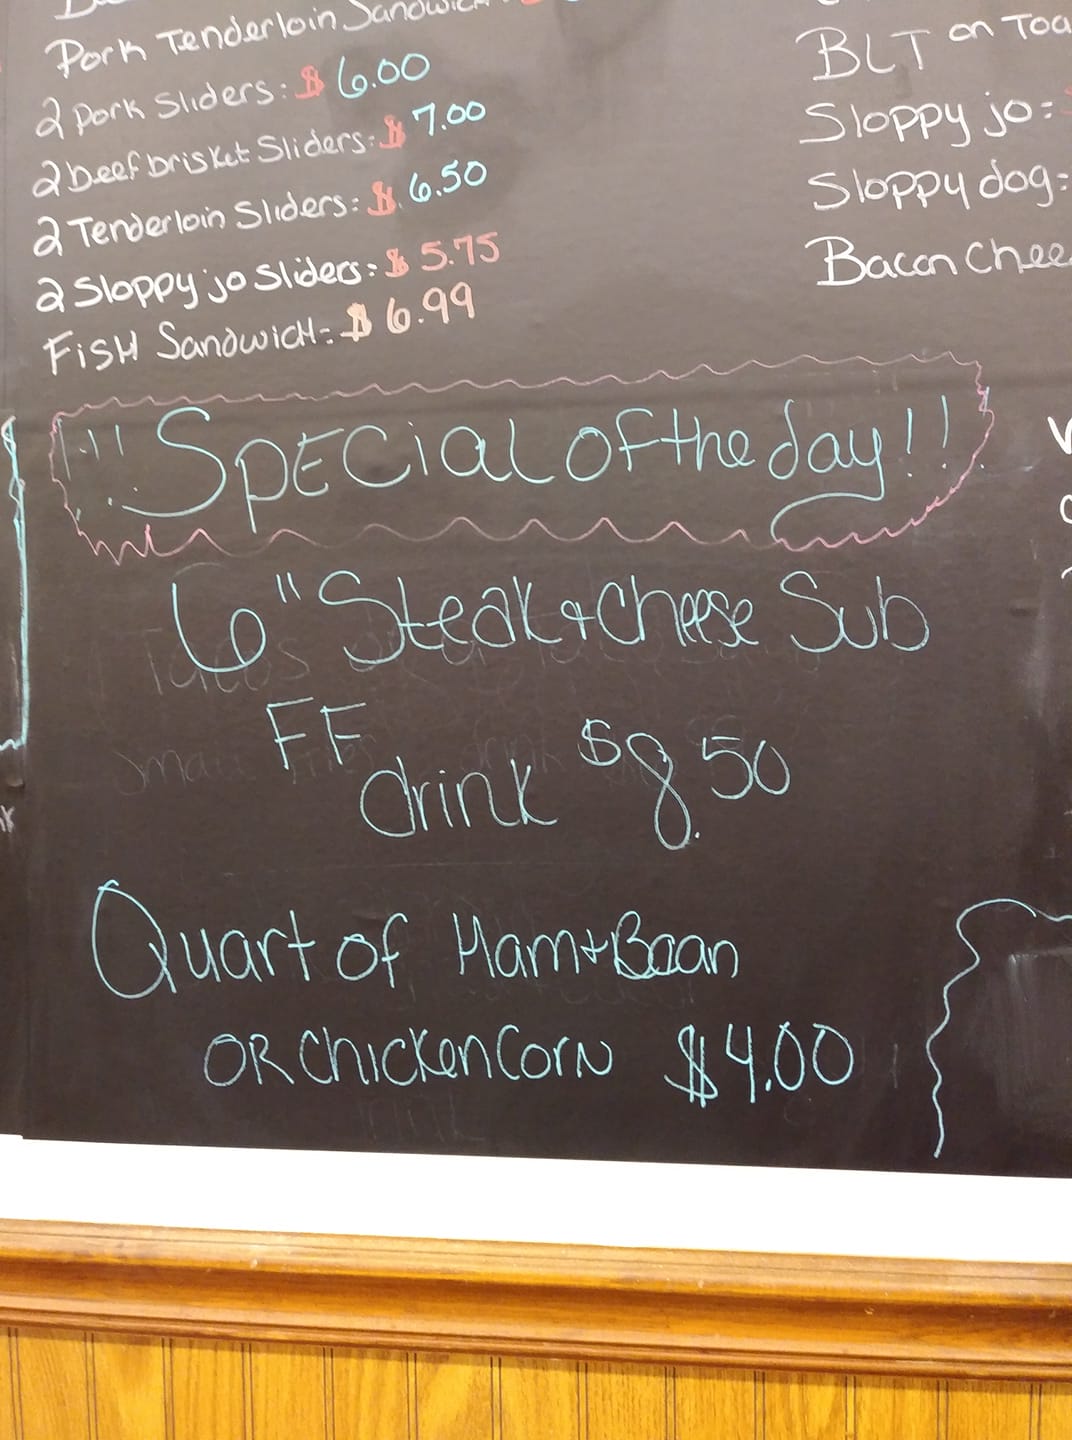 Pork Tenderloin Sandwich
2 Pork Sliders: $ 6.00
2 beef brisket Sliders: $ 7.00
2 Tenderloin Sliders: $ 6.50
2 Sloppy jo Sliders: $ 5.75
FiSH Sandwich: $ 6.99
BLT on Toa
Sloppy jo:
Sloppy dog:
Bacon Chee
!!! Special of the day!!
6" Steak + Cheese Sub
FF
drink $8.50
Quart of Ham + Baan
OR Chicken Corn $4.00